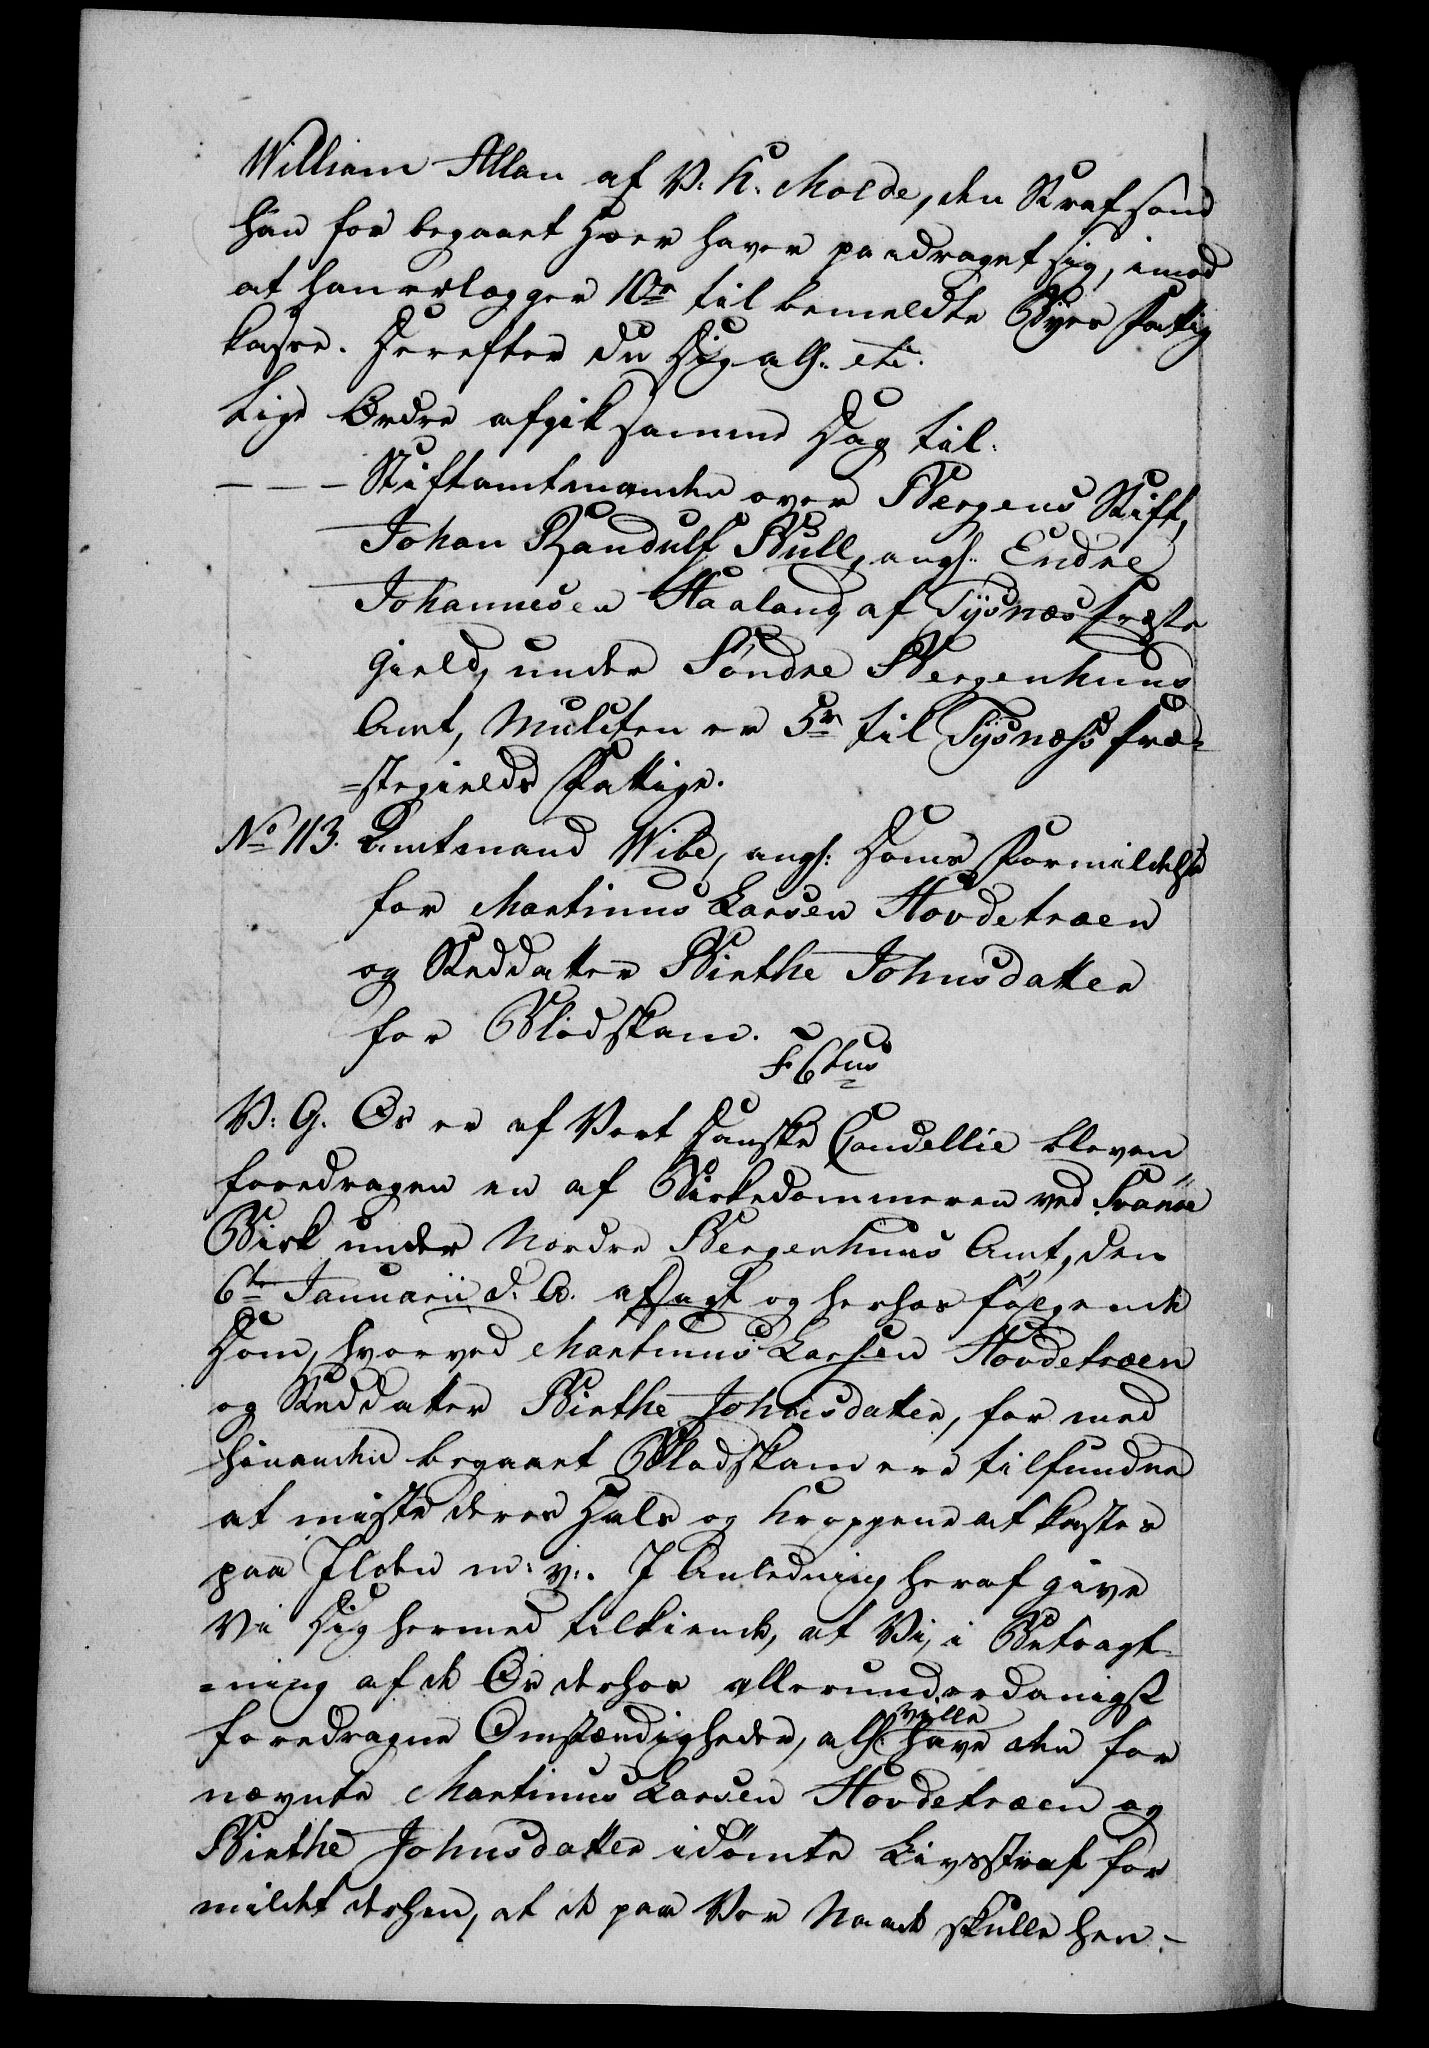 William Allan af V. K. Molde, den Straf som
han for begaaet Hoer haver paadraget sig, imod
at han erlægger 10 rd til bemeldte Byes Fattig
kasse. Herefter du Dig alh. etc.
Lige Ordre afgik samme Dag til:
— — — Stiftamtmanden over Bergens Stift,
Johan Randulf Bull, angl. Endre
Johannesen Haaland af Tysnæs Præste
Gield, under Søndre Bergenhuus
Amt, Mulcten er 5 rd til Tysnæss Præ-
=stegields Fattige.
No 113. Amtmand Wibe, angl: Doms Formildelse
for Martinus Larsen Hovdetræen
og Steddatter Birthe Johnsdatter
for Blodskam.
F 6tus
V: G. Os er af Vort Danske Cancellie bleven
foredragen en af Birkedommeren ved Svanøe
Birk under Nordre Bergenhuus Amt, den
6te Januarii d. A. afsagt og herhos følgende
Dom, hvorved Martinus Larsen Hovdetræen
og Steddatter Birthe Johnsdatter, for med
hinanden begaaet Blodskam ere tilfundne
at miste deres Hals og Kroppene at kastes
paa Ilden m: v:. I Anledning heraf give
Vi Dig hermed tilkiende, at Vi, i Betragt-
=ning af de Os derhos allerunderdanigst
foredragne Omstændigheder, alh: ville have den for
nævnte Martinus Larsen Hovdetræen og
Birthe Johnsdatter idømte Livsstraf for
mildet derhen, at de paa Vor Naade skulle hen-